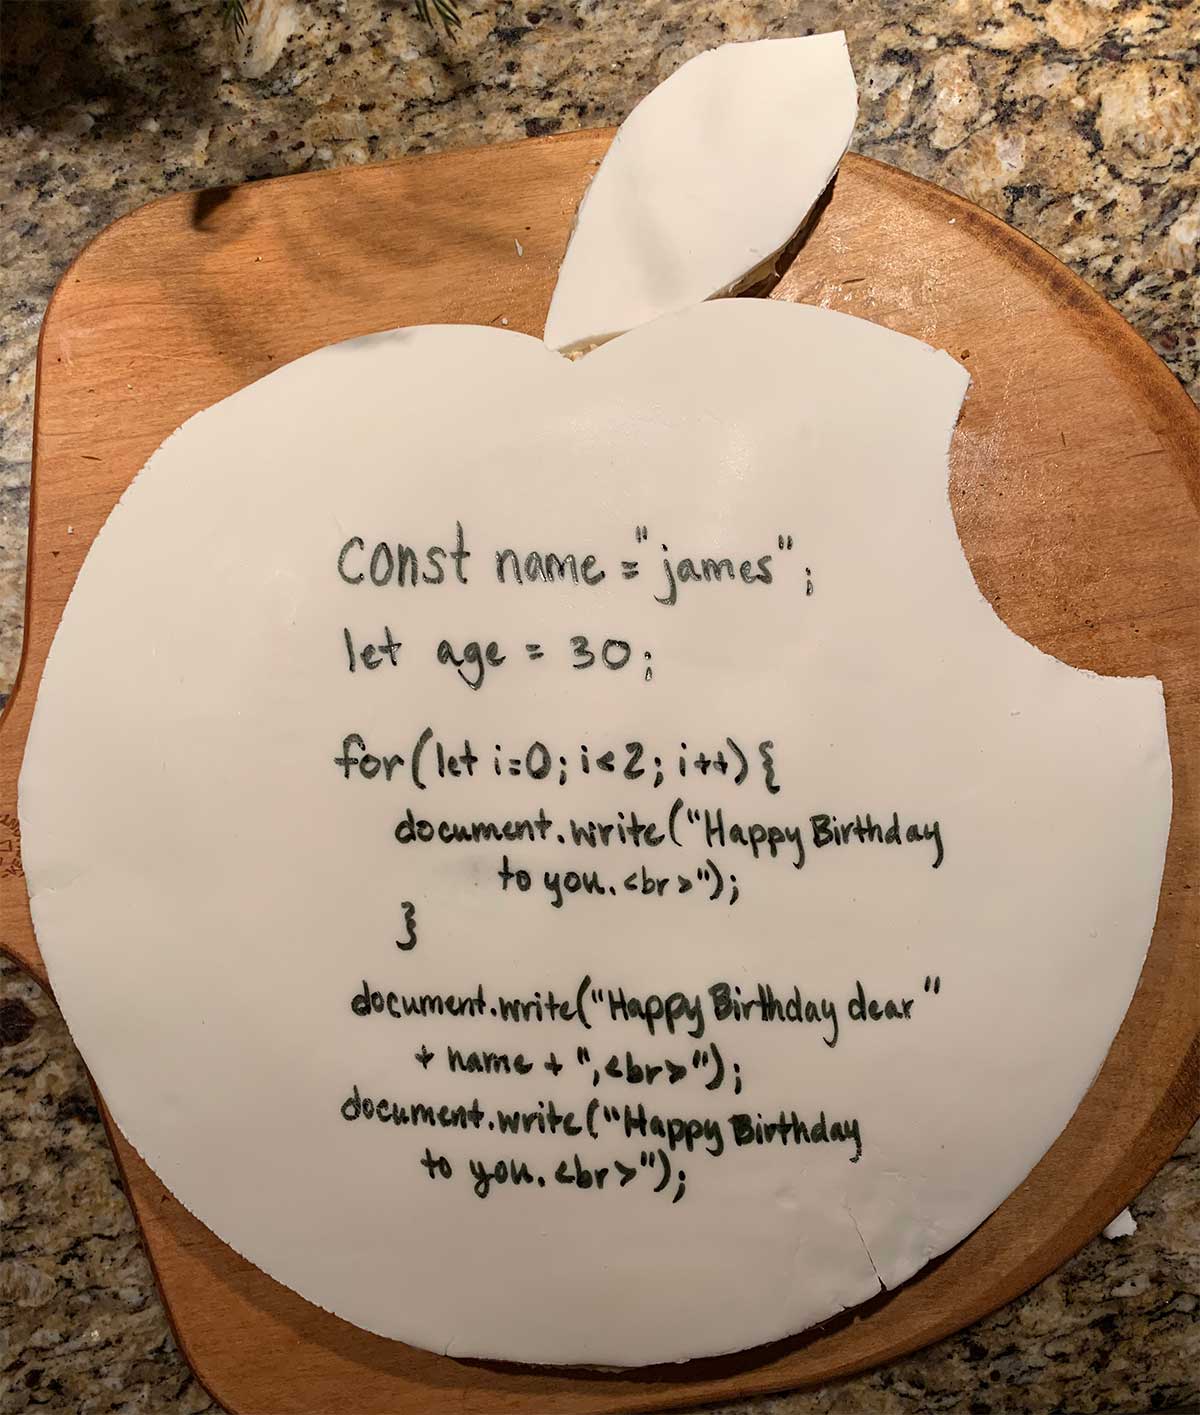 const name = "james";
let age = 30;
for(let i=0; i<2; i++){
document.write("Happy Birthday
to you.<br>");
}
document.write("Happy Birthday dear"
+ name + ",<br>");
document.write("Happy Birthday
to you.<br>");